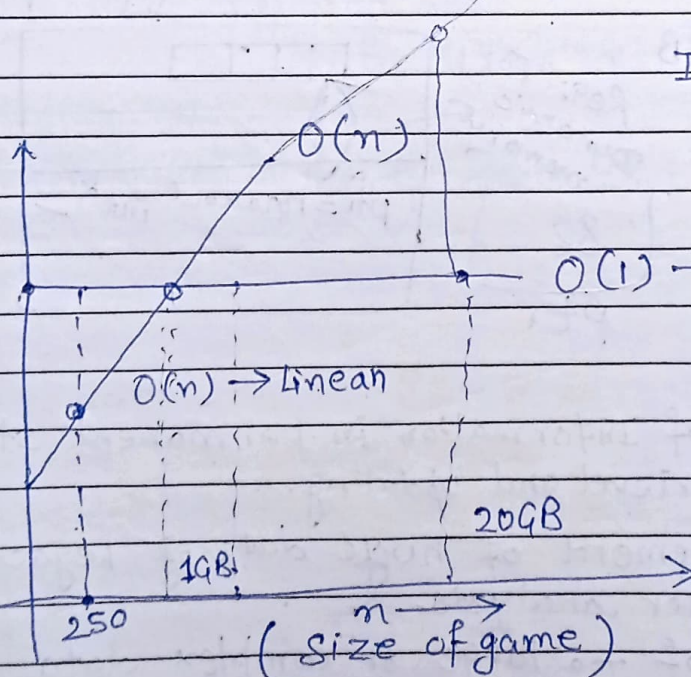 O(n)
O(1)
O(n) → Linear
20GB
1GB
250
n →
(size of game)